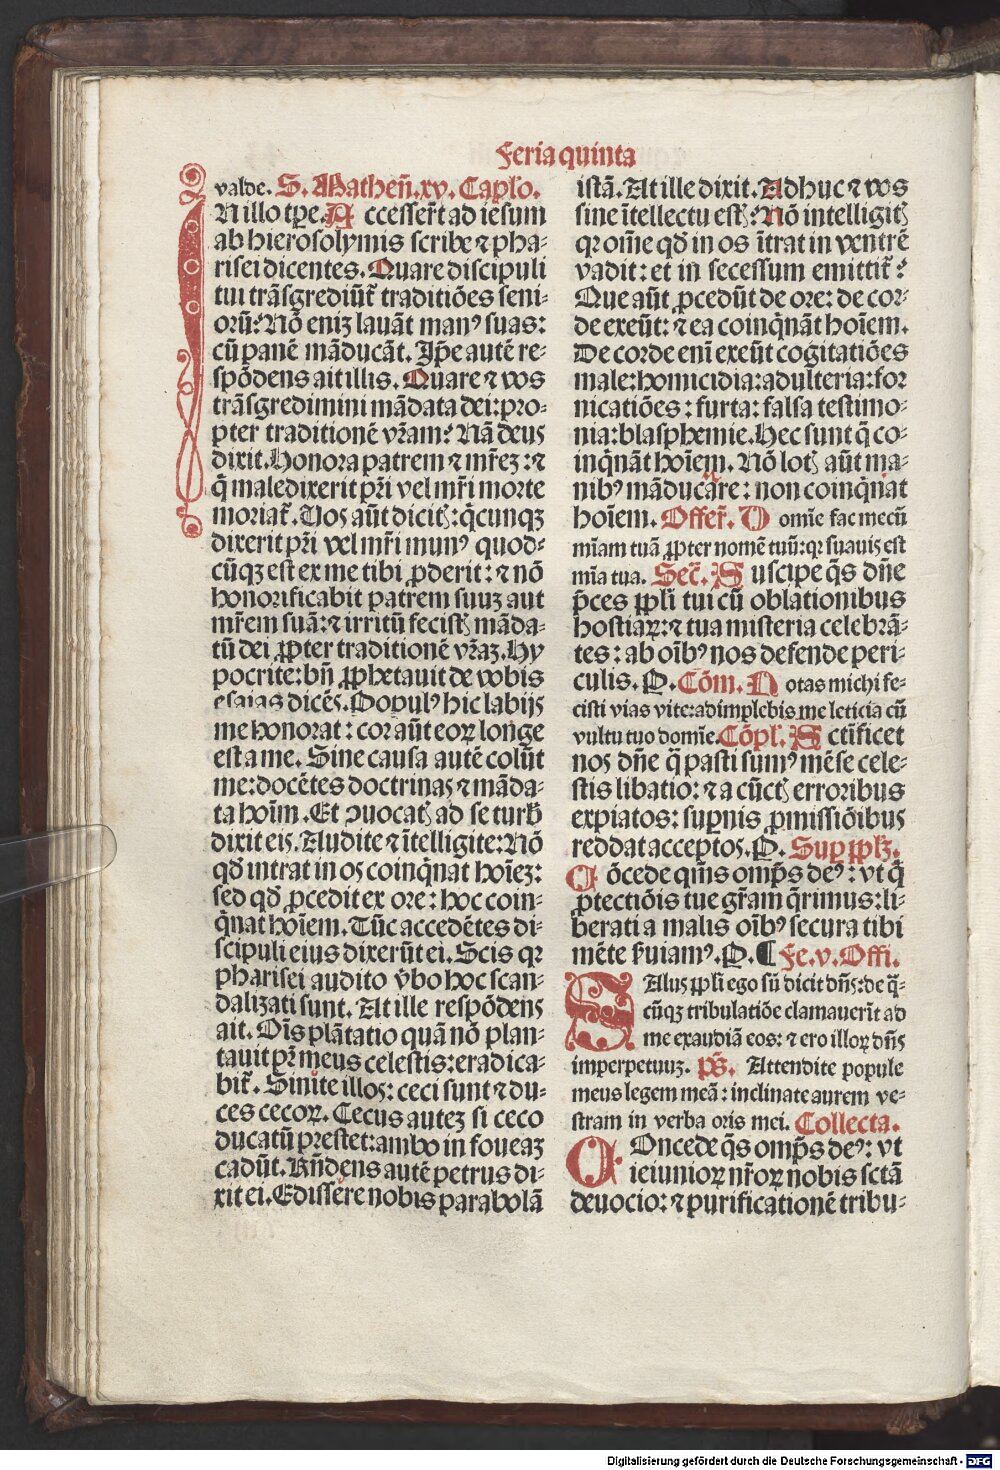 Feria quinta
valde. S. Mathen̄. xv. Caplo.
IN illo tp̄e. Accesser̄t ad iesum
ab hierosolymis scribe ⁊ pha-
risei dicentes. Quare discipuli
tui trāsgrediūt̄ traditiōes seni-
orū? Nō eniꝫ lauāt manꝰ suas:
cū panē māducāt. Ip̄e autē re-
spōdens ait illis. Quare ⁊ vos
trāsgredimini mādata dei: pro-
pter traditionē vr̄am? Nā deus
dixit. Honora patrem ⁊ mr̄eꝫ: ⁊
q̄ maledixerit pr̄i vel mr̄i morte
moriat̄. Uos aūt dicitꝭ: q̄cunqꝫ
dixerit pr̄i vel mr̄i munꝰ quod-
cūqꝫ est ex me tibi ꝓderit: ⁊ nō
honorificabit patrem suuꝫ aut
mr̄em suā: ⁊ irritū fecistꝭ māda-
tū dei ꝓpter traditionē vr̄aꝫ. Hy
pocrite: bn̄ ꝓphetauit de vobis
esaias dicēs. Populꝰ hic labijs
me honorat: cor aūt eoꝝ longe
est a me. Sine causa autē colūt
me: docētes doctrinas ⁊ māda-
ta hoīm. Et ꝯuocatꝭ ad se turb̄
dixit eis. Audite ⁊ ītelligite: Nō
qd̄ intrat in os coinq̄nat hoīeꝫ:
sed qd̄ ꝓcedit ex ore: hoc coin-
q̄nat hoīem. Tūc accedētes di-
scipuli eius dixerūt ei. Scis qꝛ
pharisei audito v̄bo hoc scan-
dalizati sunt. At ille respōdens
ait. Oīs plātatio quā nō plan-
tauit pr̄ meus celestis: eradica-
bit̄. Sinite illos: ceci sunt ⁊ du-
ces cecoꝝ. Cecus auteꝫ si ceco
ducatū prestet: ambo in foueaꝫ
cadūt. Rn̄dens autē petrus di-
xit ei. Edissere nobis parabolā
istā. At ille dixit. Adhuc ⁊ vos
sine ītellectu estꝭ? Nō intelligitꝭ
qꝛ om̄e qd̄ in os ītrat in ventrē
vadit: et in secessum emittit̄?
Que aūt ꝓcedūt de ore: de cor-
de exeūt: ⁊ ea coinq̄nāt hoīem.
De corde enī exeūt cogitatiōes
male: homicidia: adulteria: for
nicatiōes: furta: falsa testimo-
nia: blasphemie. Hec sunt q̄ co-
inq̄nāt hoīem. Nō lotꝭ aūt ma-
nibꝰ māducare: non coinq̄nat
hoīem. Offer̄. Domīe fac mecū
mīam tuā ꝓpter nomē tuū: qꝛ suauis est
mīa tua. Sec̄. Suscipe q̄s dn̄e
p̄ces ppl̄i tui cū oblationibus
hostiaꝝ: ⁊ tua misteria celebrā-
tes: ab oībꝰ nos defende peri-
culis. P. Cōm. Notas michi fe-
cisti vias vite: adimplebis me leticia cū
vultu tuo domīe. Cōpl. Sctīficet
nos dn̄e q̄ pasti sumꝰ mēse cele-
stis libatio: ⁊ a cūctꝭ erroribus
expiatos: supnis ꝓmissiōibus
reddat acceptos. P. Sup pplꝫ.
Cōcede qm̄s omp̄s deꝰ: vt q̄
ꝓtectiōis tue gr̄am q̄rimus: li-
berati a malis oībꝰ secura tibi
mēte ẜuiamꝰ. P. ¶ Fe. v. Offi.
SAlus ppl̄i ego sū dicit dn̄s: de q̄-
cūqꝫ tribulatiōe clamauerīt ad
me exaudiā eos: ⁊ ero illoꝝ dn̄s
imperpetuuꝫ. ps̄. Attendite popule
meus legem meā: inclinate aurem ve-
stram in verba oris mei. Collecta.
COncede q̄s omp̄s deꝰ: vt
ieiunioꝝ nr̄oꝝ nobis sctā
deuocio: ⁊ purificationē tribu-
Digitalisierung gefördert durch die Deutsche Forschungsgemeinschaft - DFG